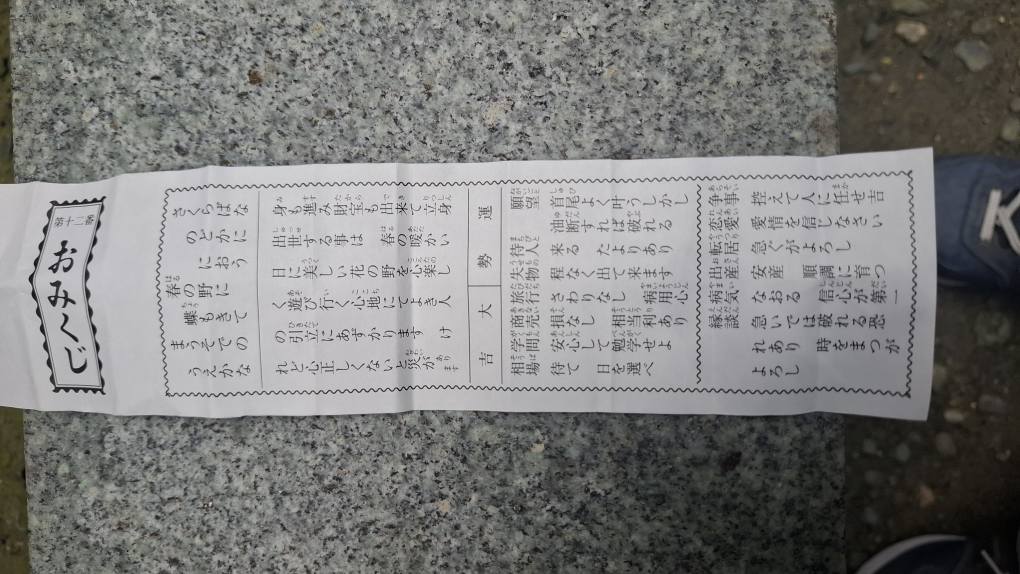 第十二番
おみくじ
さくらばな
のどかに
におう
春の野に
蝶もきて
まうそでの
うえかな
身も進み財宝も出来て立身
出世する事は 春の暖かい
日に美しい花の野を心楽し
く遊び行く心地にてよき人
の引立にあずかります け
れど心正しくないと災があります
運勢 大吉
願望 首尾よく叶うしかし
油断すれば破れる
待人 来るたよりあり
失物 程なく出て来ます
旅行 さわりなし 病用心
商売 損なし 相当利あり
学問 安心して勉学せよ
相場 待て 日を選べ
争事 控えて人に任せ吉
恋愛 愛情を信じなさい
転居 急ぐがよろし
出産 安産 順調に育つ
病気 なおる 信心が第一
縁談 急いでは破れる恐
れあり 時をまつが
よろし